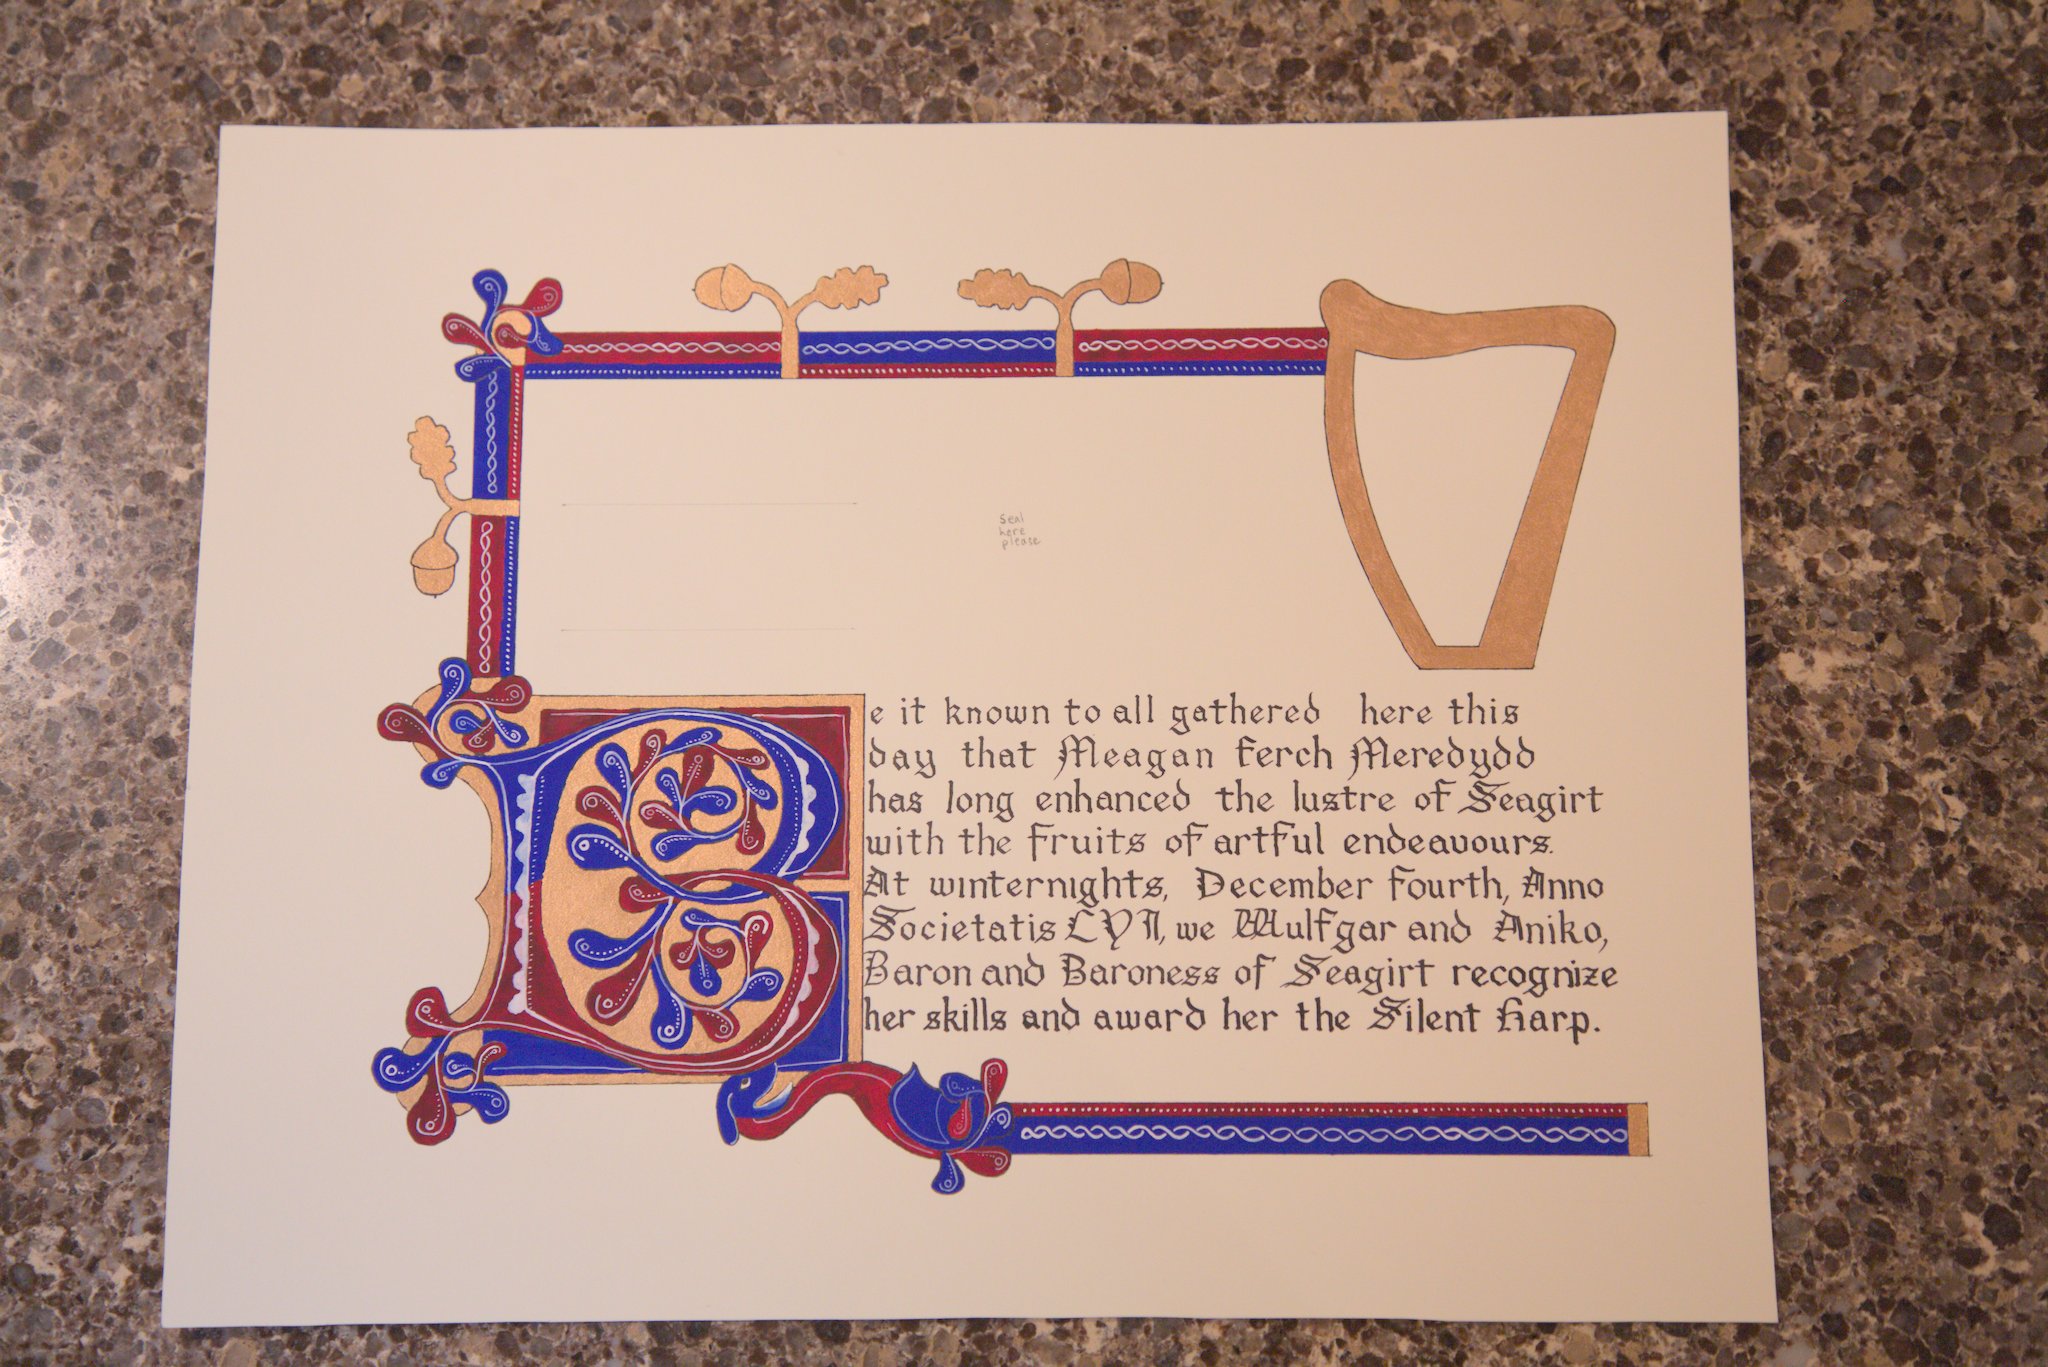 Seal
here
please
Be it known to all gathered here this
day that Meagan ferch Meredydd
has long enhanced the lustre of Seagirt
with the fruits of artful endeavours.
At winternights, December fourth, Anno
Societatis LVI, we Wulfgar and Aniko,
Baron and Baroness of Seagirt recognize
her skills and award her the Silent Harp.